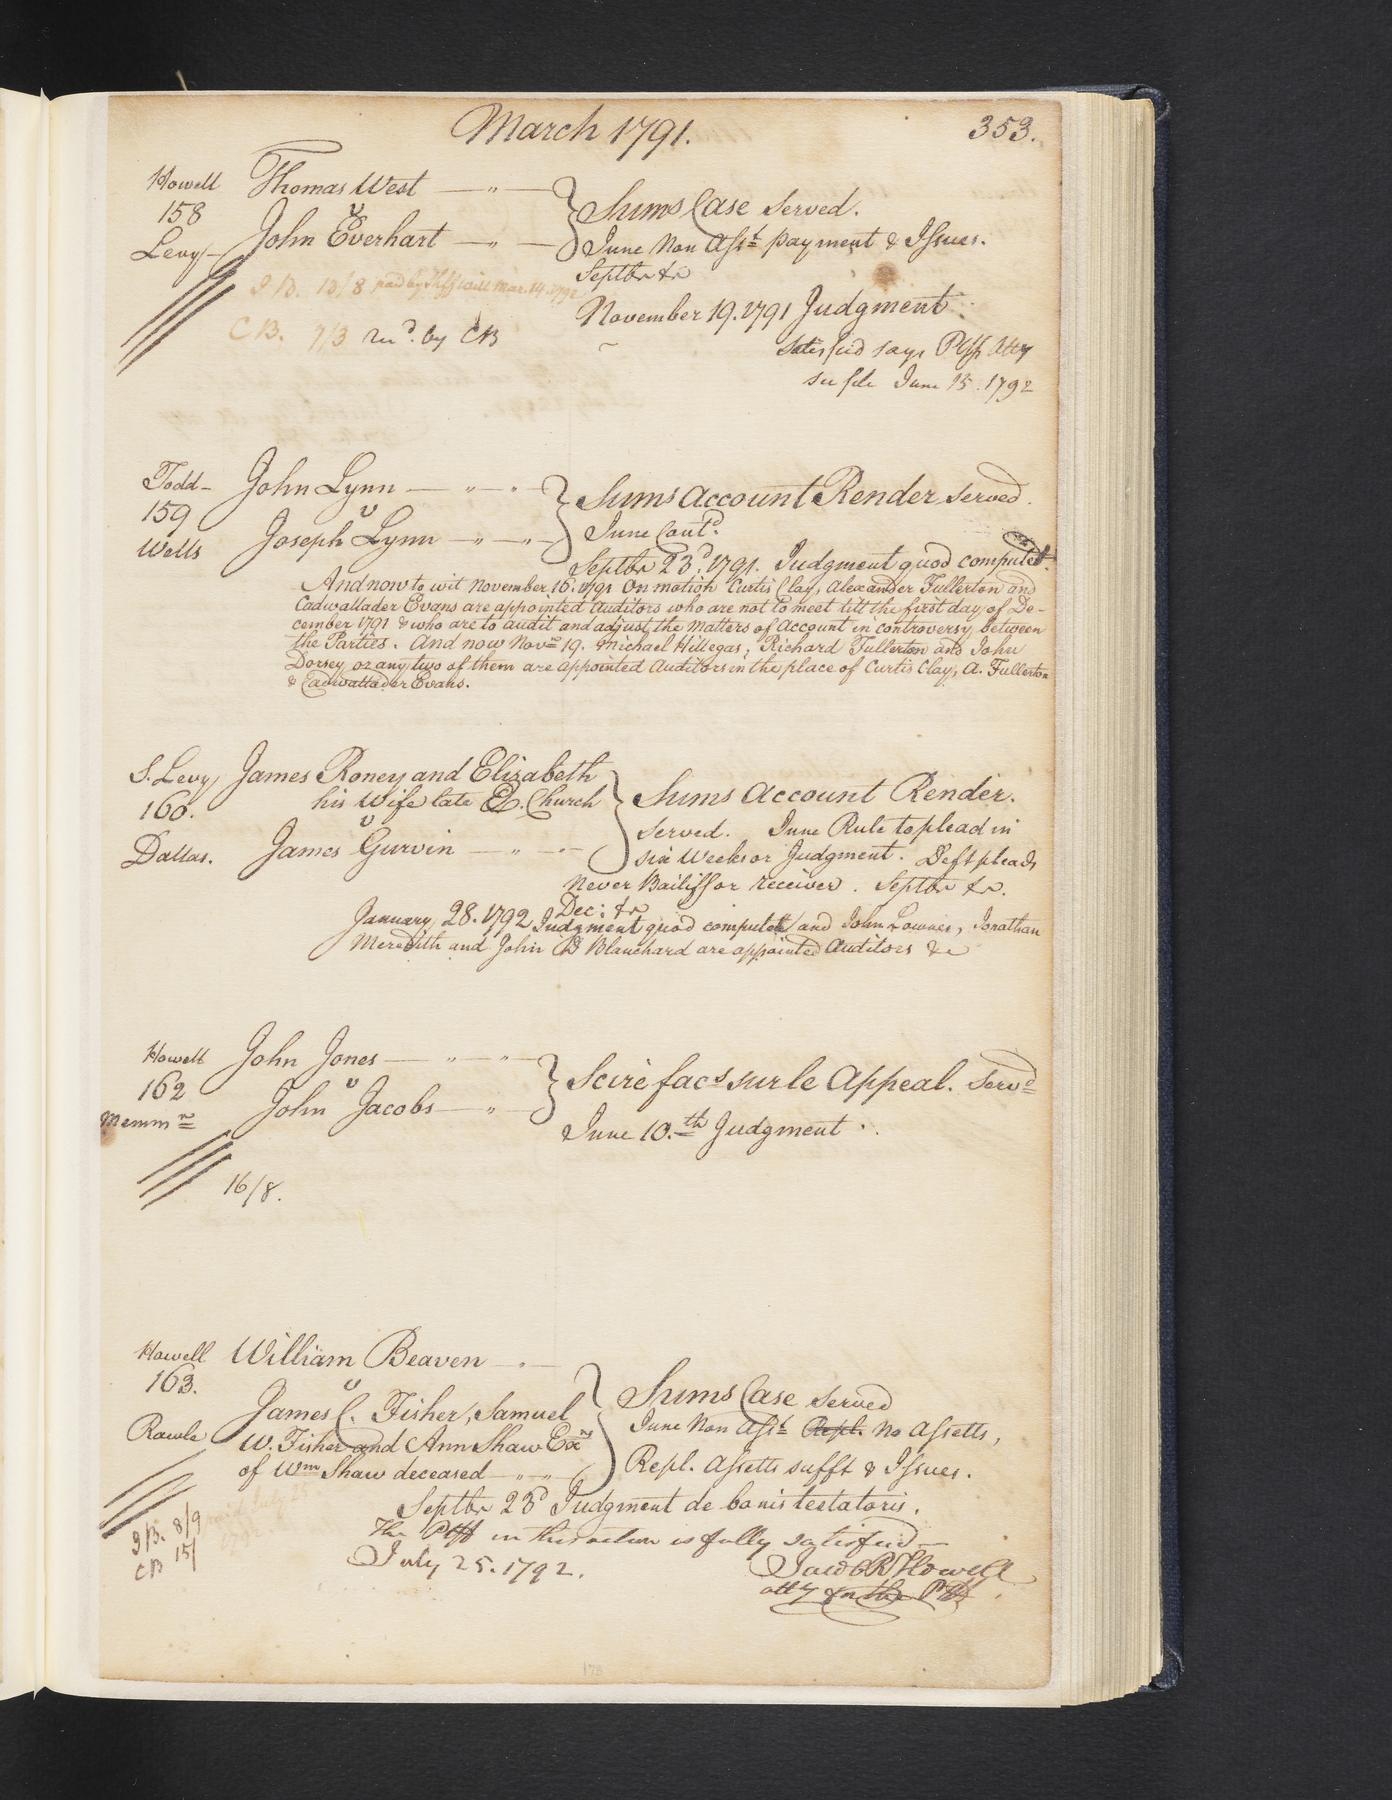 March 1791.
353.
Howell Thomas West
158 v
Levy John Everhart
Sums Case served.
June Non Asst payment & Issues.
Septbr &c
J B. 13/8 paid by Plff will Mar. 14. 1792
C B. 7/3 recd. by CB
November 19. 1791 Judgment
Satisfied says Plffs Atty
see file June 15. 1792
Todd John Lynn
159 v
Wells Joseph Lynn
Sums Account Render served.
June Contd.
Septbr 23d. 1791. Judgment quod computet.
And now to wit November 16. 1791 On motion Curtis Clay, Alexander Fullerton and
Cadwallader Evans are appointed Auditors who are not to meet till the first day of De-
cember 1791 & who are to audit and adjust the Matters of Account in controversy between
the Parties. And now Novr 19. Michael Hillegas, Richard Fullerton and John
Dorsey or any two of them are appointed Auditors in the place of Curtis Clay, A. Fullerton
& Cadwallader Evans.
S. Levy James Roney and Elizabeth
160. his Wife late E. Church
v
Dallas. James Gurvin
Sums Account Render.
served. June Rule to plead in
six Weeks or Judgment. Deft pleads
Never Bailiff or receiver. Septbr &c.
Dec: &c
January 28. 1792 Judgment quod computet and John Lownes, Jonathan
Meredith and John D Blanchard are appointed Auditors &c
Howell John Jones
162 v
Memmr John Jacobs
Scire facs sur le Appeal. Servd
June 10.th Judgment
16/8.
Howell William Beaven
163. v
James C. Fisher, Samuel
Rawle W. Fisher and Ann Shaw Exrs
of Wm Shaw deceased
Sums Case served
June Non Asst Repl. No Assetts,
Repl. Assetts sufft & Issues.
Septbr 23d Judgment de bonis testatoris.
The Plff in this action is fully satisfied
July 25. 1792.
Jacob R Howell
atty for the Plff
J B. 8/9
CB 15/
178